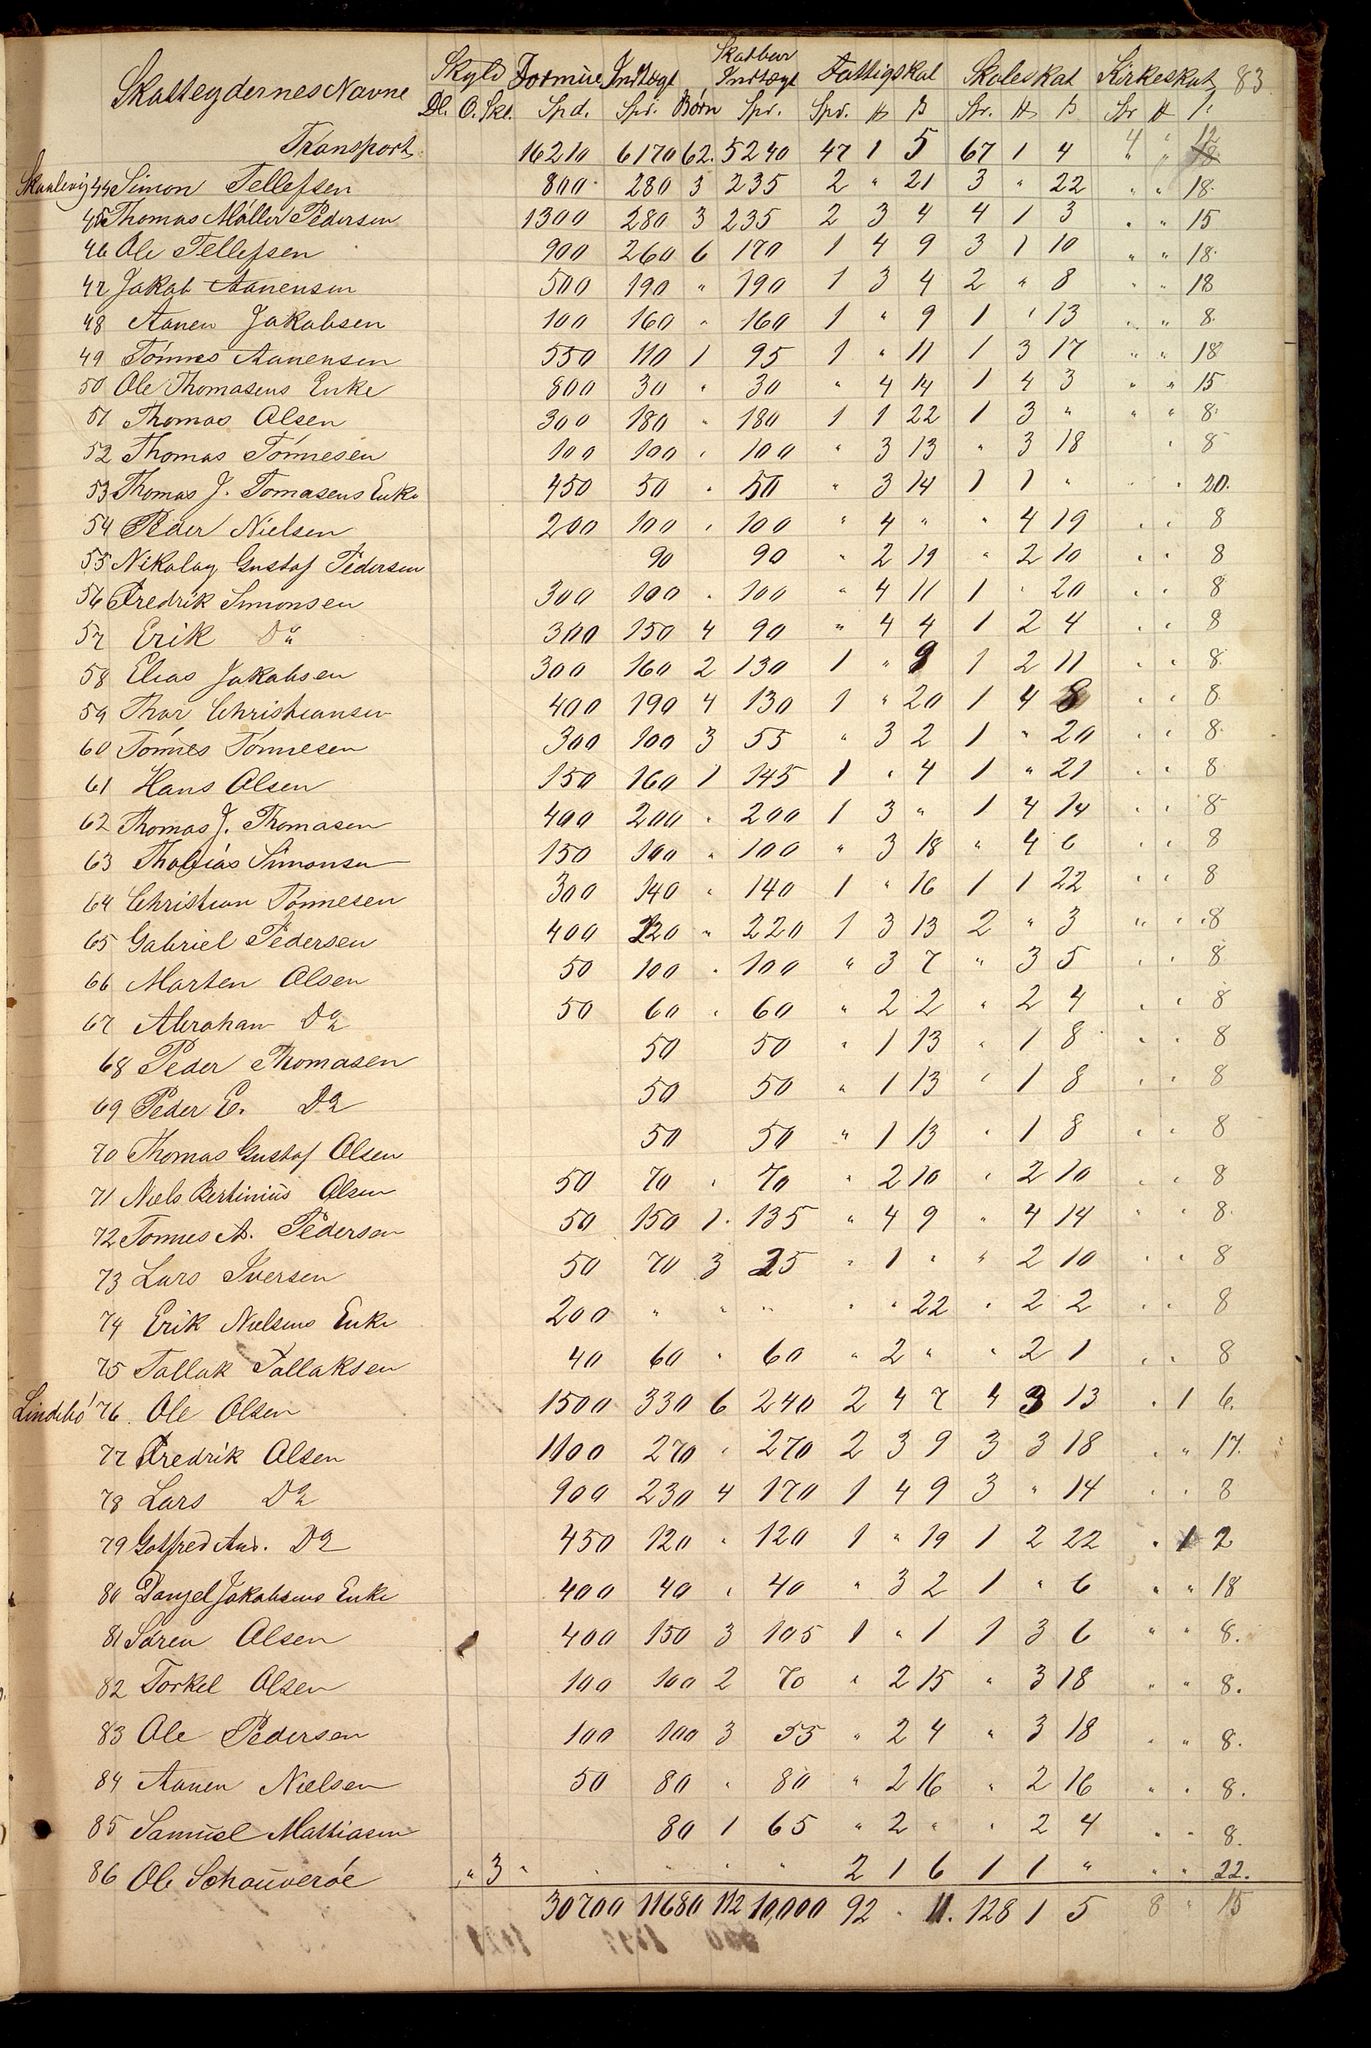 83.
Skatteydernes Navne Skyld Formue Indtægt Skatbar Indtægt Fattigskat Skoleskat Kirkeskat
Dl. O. Skl. Spd. Spd. Børn Spd. Spd. # ß Spd. # ß Spd # ß
Transport 16210 6170 62. 5240 47 1 5 67 1 4 4 " 12
Skaalevig 44 Simon Tellefsen 800 280 3 235 2 " 21 3 " 22 " " 18.
45 Thomas Møller Pedersen 1300 280 3 235 2 3 4 4 1 3 " " 15
46 Ole Tellefsen 900 260 6 170 1 4 9 3 1 10 " " 18.
47 Jakob Aanensen 500 190 " 190 1 3 4 2 " 8 " " 18
48 Aanen Jakobsen 100 160 " 160 1 " 9 1 " 13 " " 8.
49 Tønnes Aanensen 550 110 1 95 1 " 11 1 3 17 " " 18
50 Ole Thomasens Enke 800 30 " 30 " 4 14 1 4 3 " " 15
51 Thomas Olsen 300 180 " 180 1 1 22 1 3 " " " 8.
52 Thomas Tønnesen 100 100 " 100 " 3 13 " 3 18 " 8
53 Thomas J. Tomasens Enke 450 50 " 50 " 3 14 1 1 " " " 20.
54 Peder Nielsen 200 100 " 100 " 4 " " 4 19 " " 8
55 Nikolay Gustaf Pedersen 90 90 " 2 19 " 2 10 " " 8
56 Fredrik Simonsen 300 100 " 100 " 4 11 1 " 20 " " 8
57 Erik Do 300 150 4 90 " 4 4 1 2 4 " " 8
58 Elias Jakobsen 300 160 2 130 1 " 9 1 2 11 " " 8.
59 Thor Christiansen 400 190 4 130 1 " 20 1 4 8 " " 8.
60 Tønnes Tønnesen 300 100 3 55 " 3 2 1 " 20 " " 8.
61 Hans Olsen 150 160 1 145 1 " 4 1 " 21 " " 8.
62 Thomas J. Thomasen 400 200 " 200 1 3 " 1 4 14 " " 8
63 Thobias Simonsen 150 100 " 100 " 3 18 " 4 6 " " 8
64 Christian Tønnesen 300 140 " 140 1 " 16 1 1 22 " " 8
65 Gabriel Pedersen 400 220 " 220 1 3 13 2 " 3 " " 8
66 Morten Olsen 50 100 " 100 " 3 7 " 3 5 " " 8
67 Abraham Do 50 60 " 60 " 2 2 " 2 4 " " 8
68 Peder Thomasen 50 50 " 1 13 " 1 8 " " 8
69 Peder E. Do 50 50 " 1 13 " 1 8 " " 8
70 Thomas Gustaf Olsen 50 50 " 1 13 " 1 8 " " 8
71 Niels Bertinius Olsen 50 70 " 70 " 2 10 " 2 10 " " 8
72 Tønnes A. Pedersen 50 150 1. 135 " 4 9 " 4 14 " " 8.
73 Lars Iversen 50 70 3 25 " 1 " " 2 10 " " 8
74 Erik Nielsens Enke 200 " " " " " 22 " 2 2 " " 8
75 Tallak Tallaksen 40 60 " 60 " 2 " " 2 1 " " 8
Lindebø 76. Ole Olsen 1500 330 6 240 2 4 7 4 3 13 " 1 6.
77 Fredrik Olsen 1100 270 " 270 2 3 9 3 3 18 " " 17.
78 Lars Do 900 230 4 170 1 4 9 3 " 14 " " 8
79 Gotfred And. Do 450 120 " 120 1 " 19 1 2 22 " 1 2
80 Danjel Jakobsens Enke 400 40 " 40 " 3 2 1 " 6 " " 18
81 Søren Olsen 400 150 3 105 1 " 1 1 3 6 " " 8.
82 Torkel Olsen 100 100 2 70 " 2 15 " 3 18 " " 8.
83 Ole Pedersen 100 100 3 55 " 2 4 " 3 18 " " 8.
84 Aanen Nielsen 50 80 " 80 " 2 16 " 2 16 " " 8.
85 Samuel Mathiasen 80 1 65 " 2 " " 2 4 " " 8.
86 Ole Schouverøe " 3 " " " " " 2 1 6 1 1 " " " 22.
30700 11680 112 10,000 92 " 11. 128 1 5 8 " 15